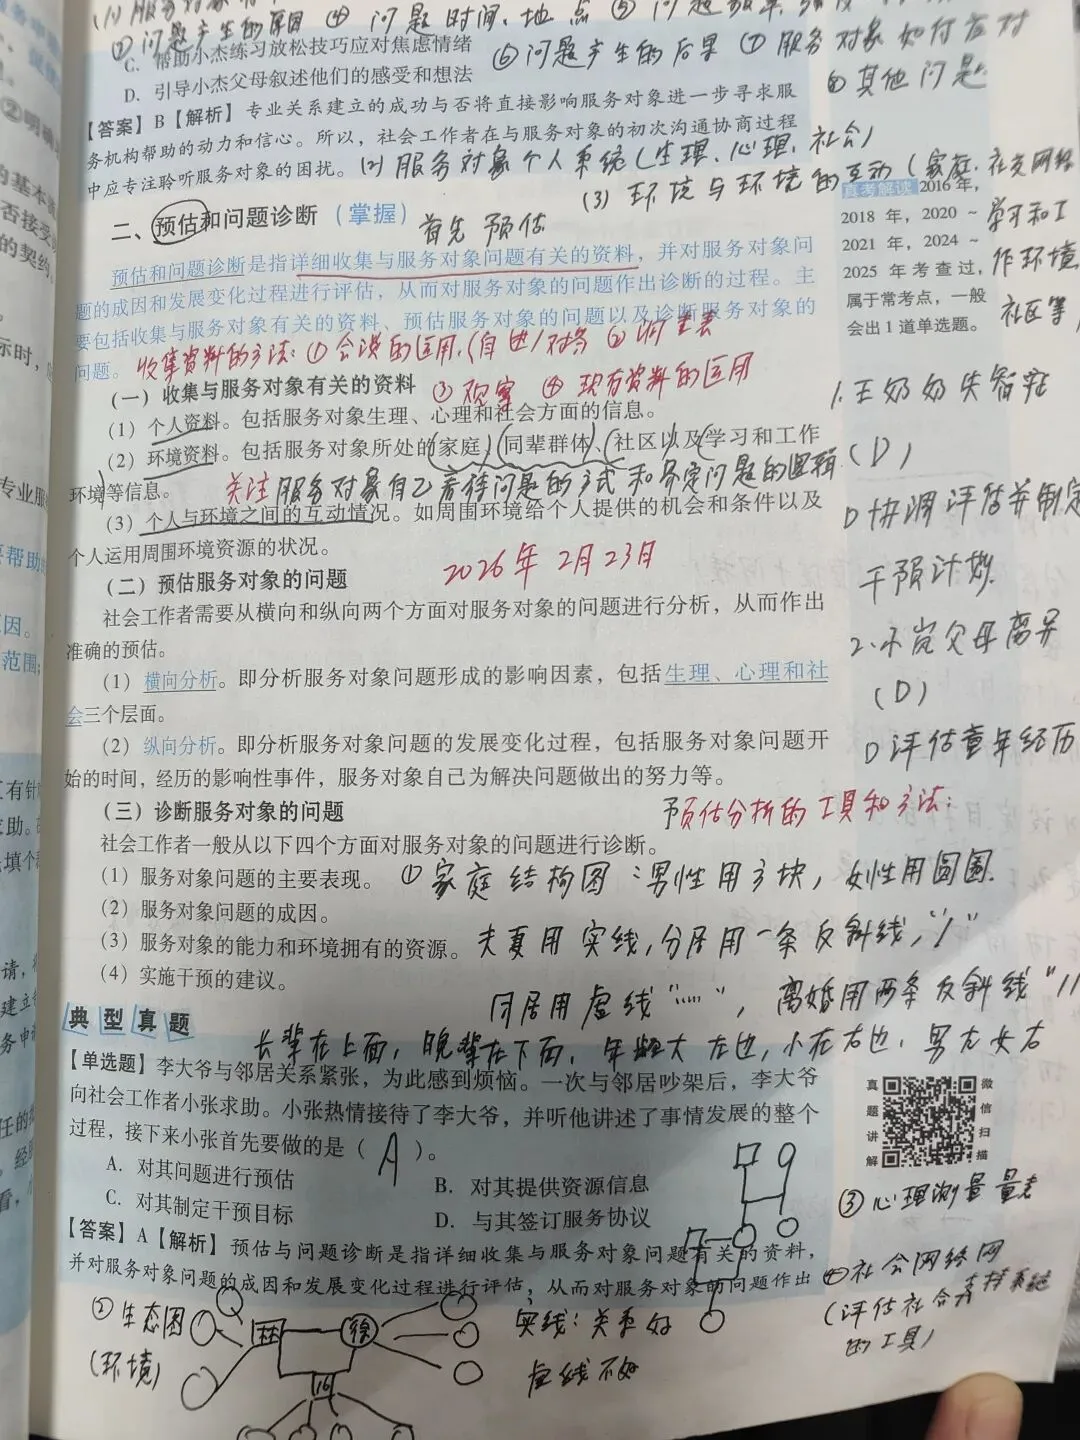 ②问题产生的原因 ④问题时间、地点 ⑤问题
C. 帮助小杰练习放松技巧应对焦虑情绪
⑥问题产生的后果 ⑦服务对象如何应对
D. 引导小杰父母叙述他们的感受和想法
⑧其他问题
【答案】B【解析】专业关系建立的成功与否将直接影响服务对象进一步寻求服
务机构帮助的动力和信心。所以，社会工作者在与服务对象的初次沟通协商过程
中应专注聆听服务对象的困扰。
(2)服务对象个人系统(生理、心理、社会)
(3)环境与环境的互动(家庭、社交网络
学习和工
作环境
社区等)
二、预估和问题诊断（掌握）
首先预估
真考解读 2016年，
2018 年，2020 ~
2021 年，2024 ~
2025 年考查过，
属于常考点，一般
会出1道单选题。
预估和问题诊断是指详细收集与服务对象问题有关的资料，并对服务对象问
题的成因和发展变化过程进行评估，从而对服务对象的问题作出诊断的过程。主
要包括收集与服务对象有关的资料、预估服务对象的问题以及诊断服务对象的
问题。
收集资料的方法:①会谈的运用、(自述)对答 ②调查表
③观察 ④现有资料的运用
（一）收集与服务对象有关的资料
（1）个人资料。包括服务对象生理、心理和社会方面的信息。
（2）环境资料。包括服务对象所处的家庭、同辈群体、社区以及学习和工作
环境等信息。
关注服务对象自己看待问题的方式和界定问题的逻辑
（3）个人与环境之间的互动情况。如周围环境给个人提供的机会和条件以及
个人运用周围环境资源的状况。
2026年2月23日
（二）预估服务对象的问题
社会工作者需要从横向和纵向两个方面对服务对象的问题进行分析，从而作出
准确的预估。
（1）横向分析。即分析服务对象问题形成的影响因素，包括生理、心理和社
会三个层面。
（2）纵向分析。即分析服务对象问题的发展变化过程，包括服务对象问题开
始的时间，经历的影响性事件，服务对象自己为解决问题做出的努力等。
1.王奶奶失智症
(D)
D协调评估并制定
干预计划.
2.小岚父母离异
(D)
D评估童年经历
（三）诊断服务对象的问题
预估分析的工具和方法:
社会工作者一般从以下四个方面对服务对象的问题进行诊断。
（1）服务对象问题的主要表现。
（2）服务对象问题的成因。
（3）服务对象的能力和环境拥有的资源。
（4）实施干预的建议。
①家庭结构图:男性用方块，女性用圆圈.
夫妻用实线，分居用一条反斜线，"/"
同居用虚线"┈"，离婚用两条反斜线"//
长辈在上面，晚辈在下面，年龄大左边，小在右边，男左女右
典型真题
【单选题】李大爷与邻居关系紧张，为此感到烦恼。一次与邻居吵架后，李大爷
向社会工作者小张求助。小张热情接待了李大爷，并听他讲述了事情发展的整个
过程，接下来小张首先要做的是（ A ）。
A. 对其问题进行预估
B. 对其提供资源信息
C. 对其制定干预目标
D. 与其签订服务协议
【答案】A【解析】预估与问题诊断是指详细收集与服务对象问题有关的资料，
并对服务对象问题的成因和发展变化过程进行评估，从而对服务对象的问题作出
真题讲解
微信扫描
③心理测量量表
④社会网络网
(评估社会支持系统
的工具)
②生态图
(环境)
林
徐
16
实线:关系好
虚线不好